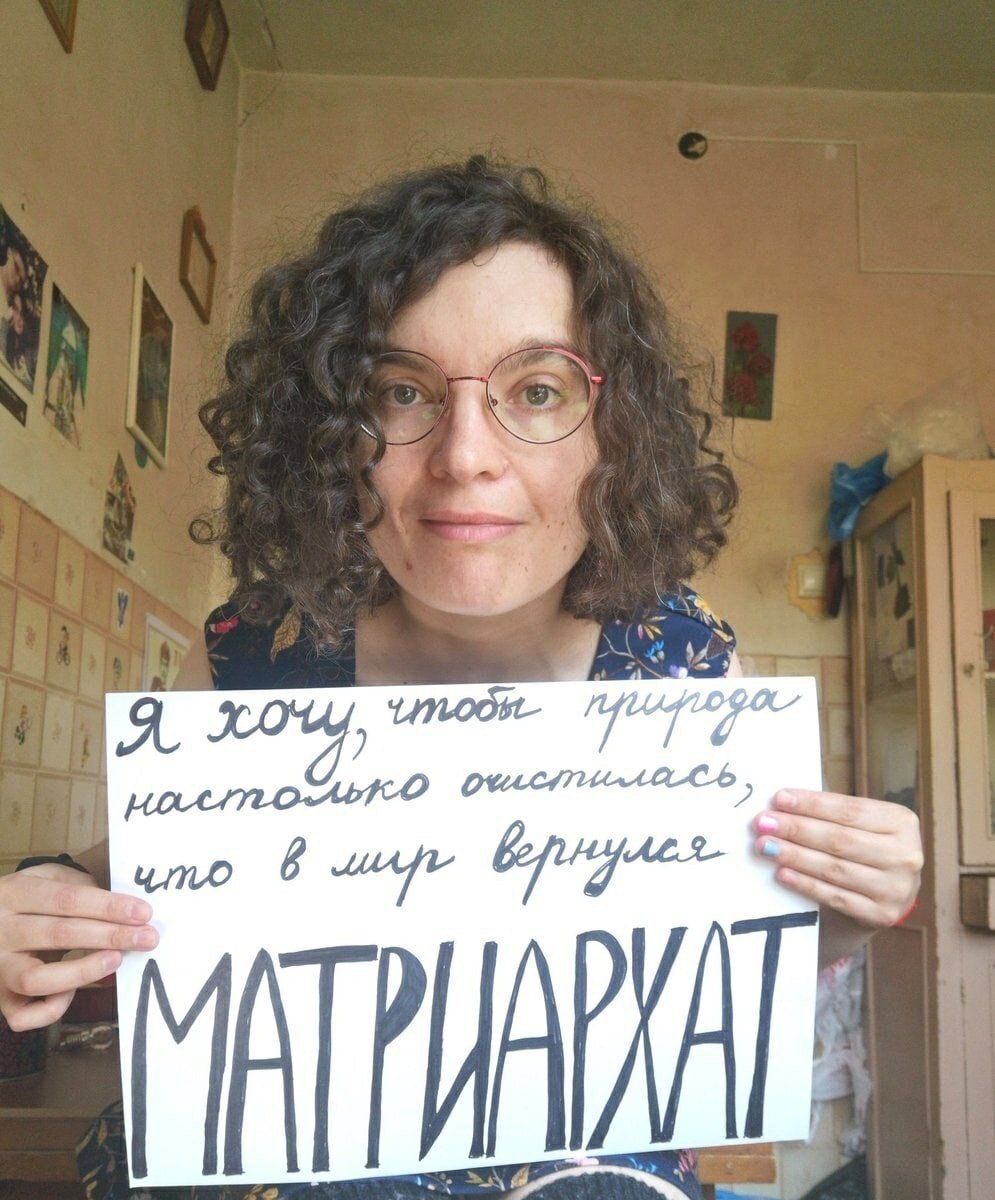 Я хочу, чтобы природа
настолько очистилась,
что в мир вернулся
МАТРИАРХАТ